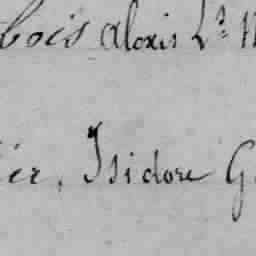 bois Alexis Ls
ier, Isidore G